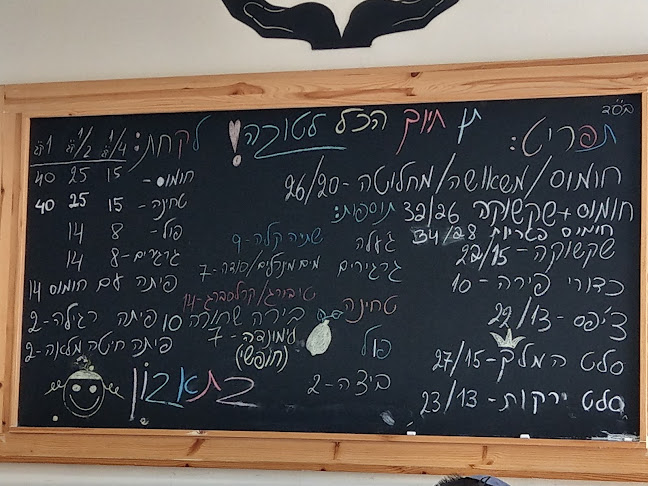 בס"ד
תן חיוך הכל לטובה!
תפריט:
חומוס/משאושה/מחליטה - 26/20
חומוס + שקשוקה 32/26
חומוס פטריות 34/28
שקשוקה - 22/15
כדורי פירה - 10
צ'יפס - 22/13
סלט המלך - 27/15
סלט ירקות - 23/13
תוספות:
ג'עלה
גרגירים
טחינה
פול
ביצה - 2
שתיה קלה - 9
מים מינרלים/סודה - 7
טובורג/קרלסברג - 14
בירה שחורה 10
לימונדה - 7
(חופשי)
לקחת:
1/4 1/2 1
חומוס - 15 25 40
טחינה - 15 25 40
פול - 8 14
גרגרים - 8 14
פיתה עם חומוס 14
פיתה רגילה - 2
פיתה חיטה מלאה - 2
בתאבון